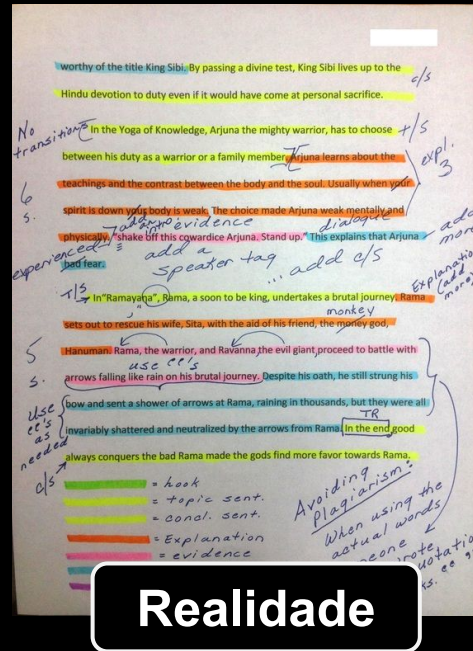 worthy of the title King Sibi. By passing a divine test, King Sibi lives up to the
c/s
Hindu devotion to duty even if it would have come at personal sacrifice.
No
transitions
In the Yoga of Knowledge, Arjuna the mighty warrior, has to choose
T/S
between his duty as a warrior or a family member. Arjuna learns about the
expl.
3
teachings and the contrast between the body and the soul. Usually when your
6
s.
spirit is down your body is weak. The choice made Arjuna weak mentally and
add intro evidence
dialogue
physically. "shake off this cowardice Arjuna. Stand up." This explains that Arjuna
add
more
experienced
bad fear.
add a
speaker tag
... add c/s
Explanation
(add
more)
T/S
In"Ramayana", Rama, a soon to be king, undertakes a brutal journey. Rama
monkey
sets out to rescue his wife, Sita, with the aid of his friend, the money god,
5
s.
Hanuman. Rama, the warrior, and Ravanna,the evil giant,proceed to battle with
use ee's
arrows falling like rain on his brutal journey. Despite his oath, he still strung his
use
ee's
as
needed
bow and sent a shower of arrows at Rama, raining in thousands, but they were all
TR
invariably shattered and neutralized by the arrows from Rama. In the end good
c/s
always conquers the bad Rama made the gods find more favor towards Rama.
= hook
= topic sent.
= concl. sent.
= Explanation
= evidence
Avoiding
Plagiarism:
When using the
actual words
Realidade